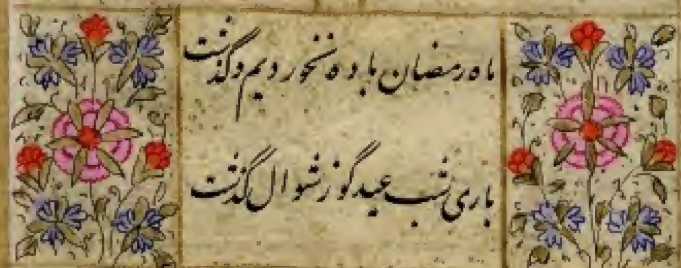 ماه رمضان باده نخوردیم و گذشت
باری شب عید گو ز شوال گذشت